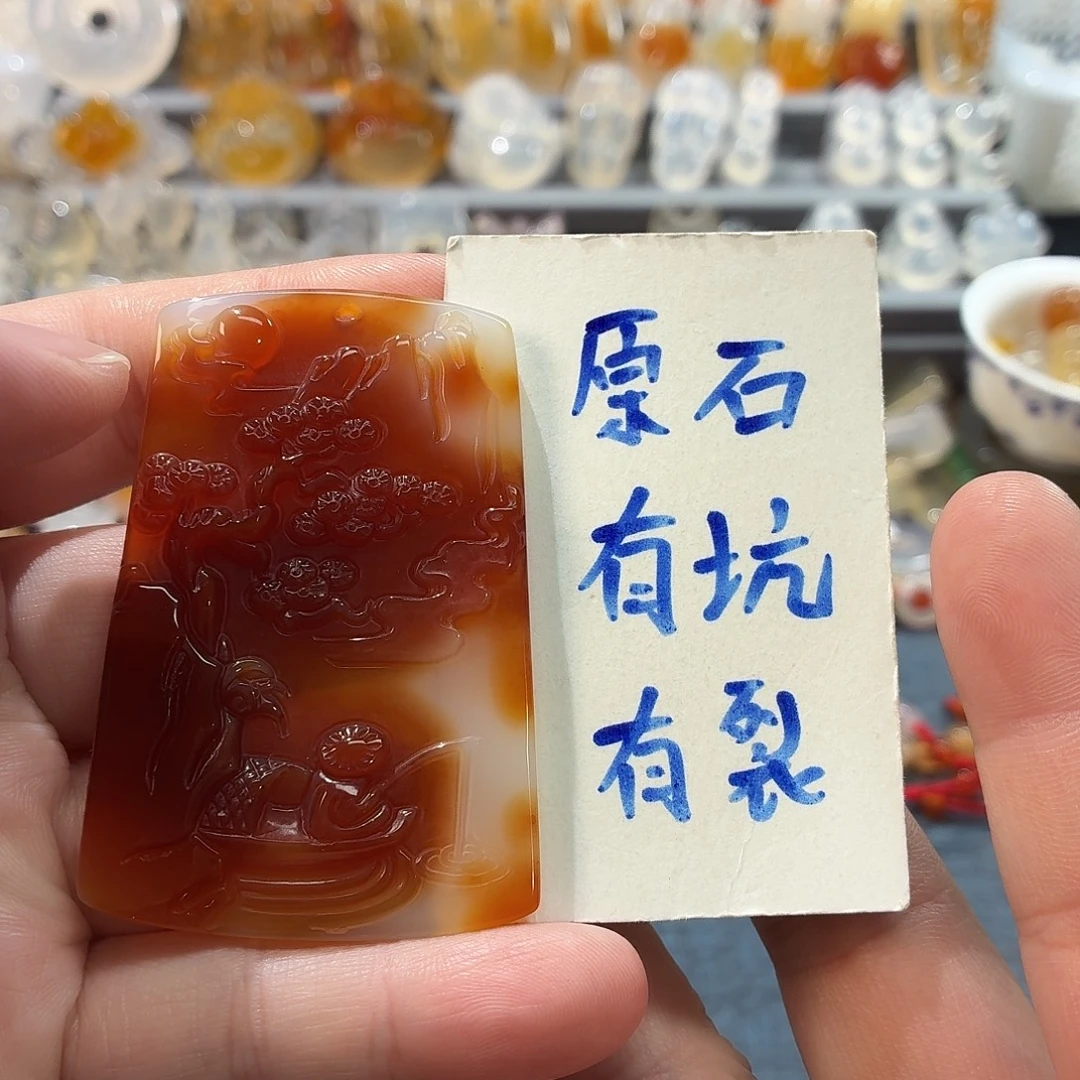 原石
有坑
有裂